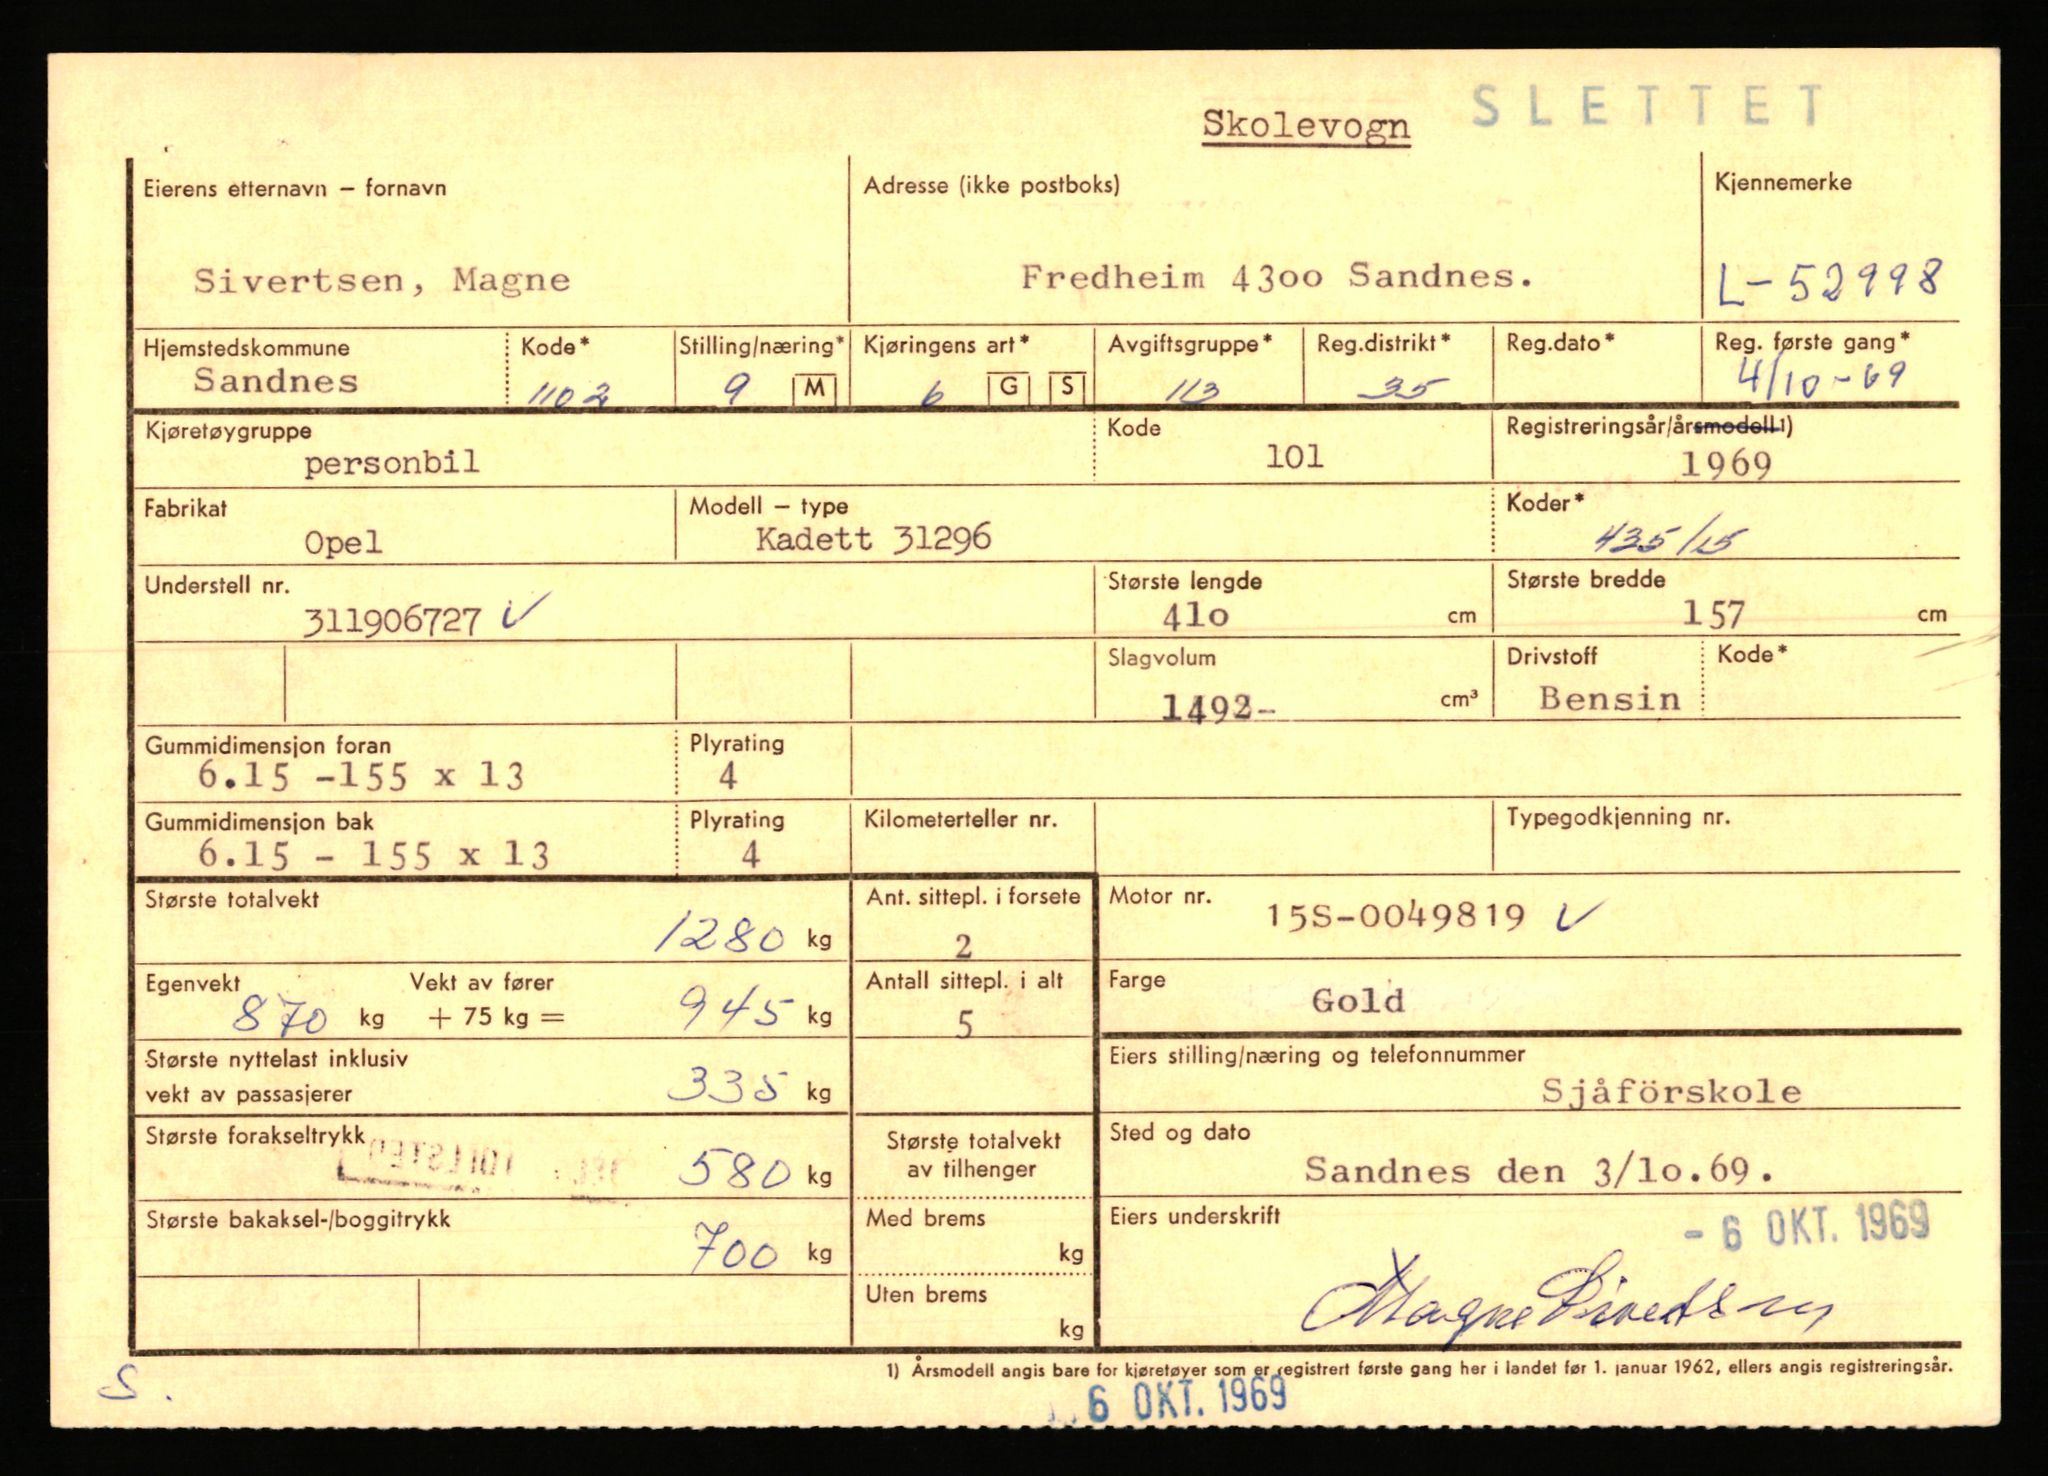 Skolevogn SLETTET
Eierens etternavn – fornavn Adresse (ikke postboks) Kjennemerke
Sivertsen, Magne Fredheim 43oo Sandnes. L-52998
Hjemstedskommune Kode* Stilling/næring* Kjøringens art* Avgiftsgruppe* Reg.distrikt* Reg.dato* Reg. første gang*
Sandnes 1102 9 M 6 G S 113 35 4/10-69
Kjøretøygruppe Kode Registreringsår/årsmodell1)
personbil 101 1969
Fabrikat Modell – type Koder*
Opel Kadett 31296 435/15
Understell nr. Største lengde Største bredde
311906727 ✓ 41o cm 157 cm
Slagvolum Drivstoff Kode*
1492- cm³ Bensin
Gummidimensjon foran Plyrating
6.15 -155 x 13 4
Gummidimensjon bak Plyrating Kilometerteller nr. Typegodkjenning nr.
6.15 - 155 x 13 4
Største totalvekt Ant. sittepl. i forsete Motor nr.
1280 kg 2 15S-0049819 ✓
Egenvekt Vekt av fører Antall sittepl. i alt Farge
870 kg + 75 kg = 945 kg 5 Gold
Største nyttelast inklusiv Eiers stilling/næring og telefonnummer
vekt av passasjerer 335 kg Sjåförskole
Største forakseltrykk Største totalvekt Sted og dato
580 kg av tilhenger Sandnes den 3/1o.69.
Største bakaksel-/boggitrykk Med brems Eiers underskrift
700 kg kg - 6 OKT. 1969
Uten brems Magne Sivertsen
kg
1) Årsmodell angis bare for kjøretøyer som er registrert første gang her i landet før 1. januar 1962, ellers angis registreringsår.
S.
6 OKT. 1969